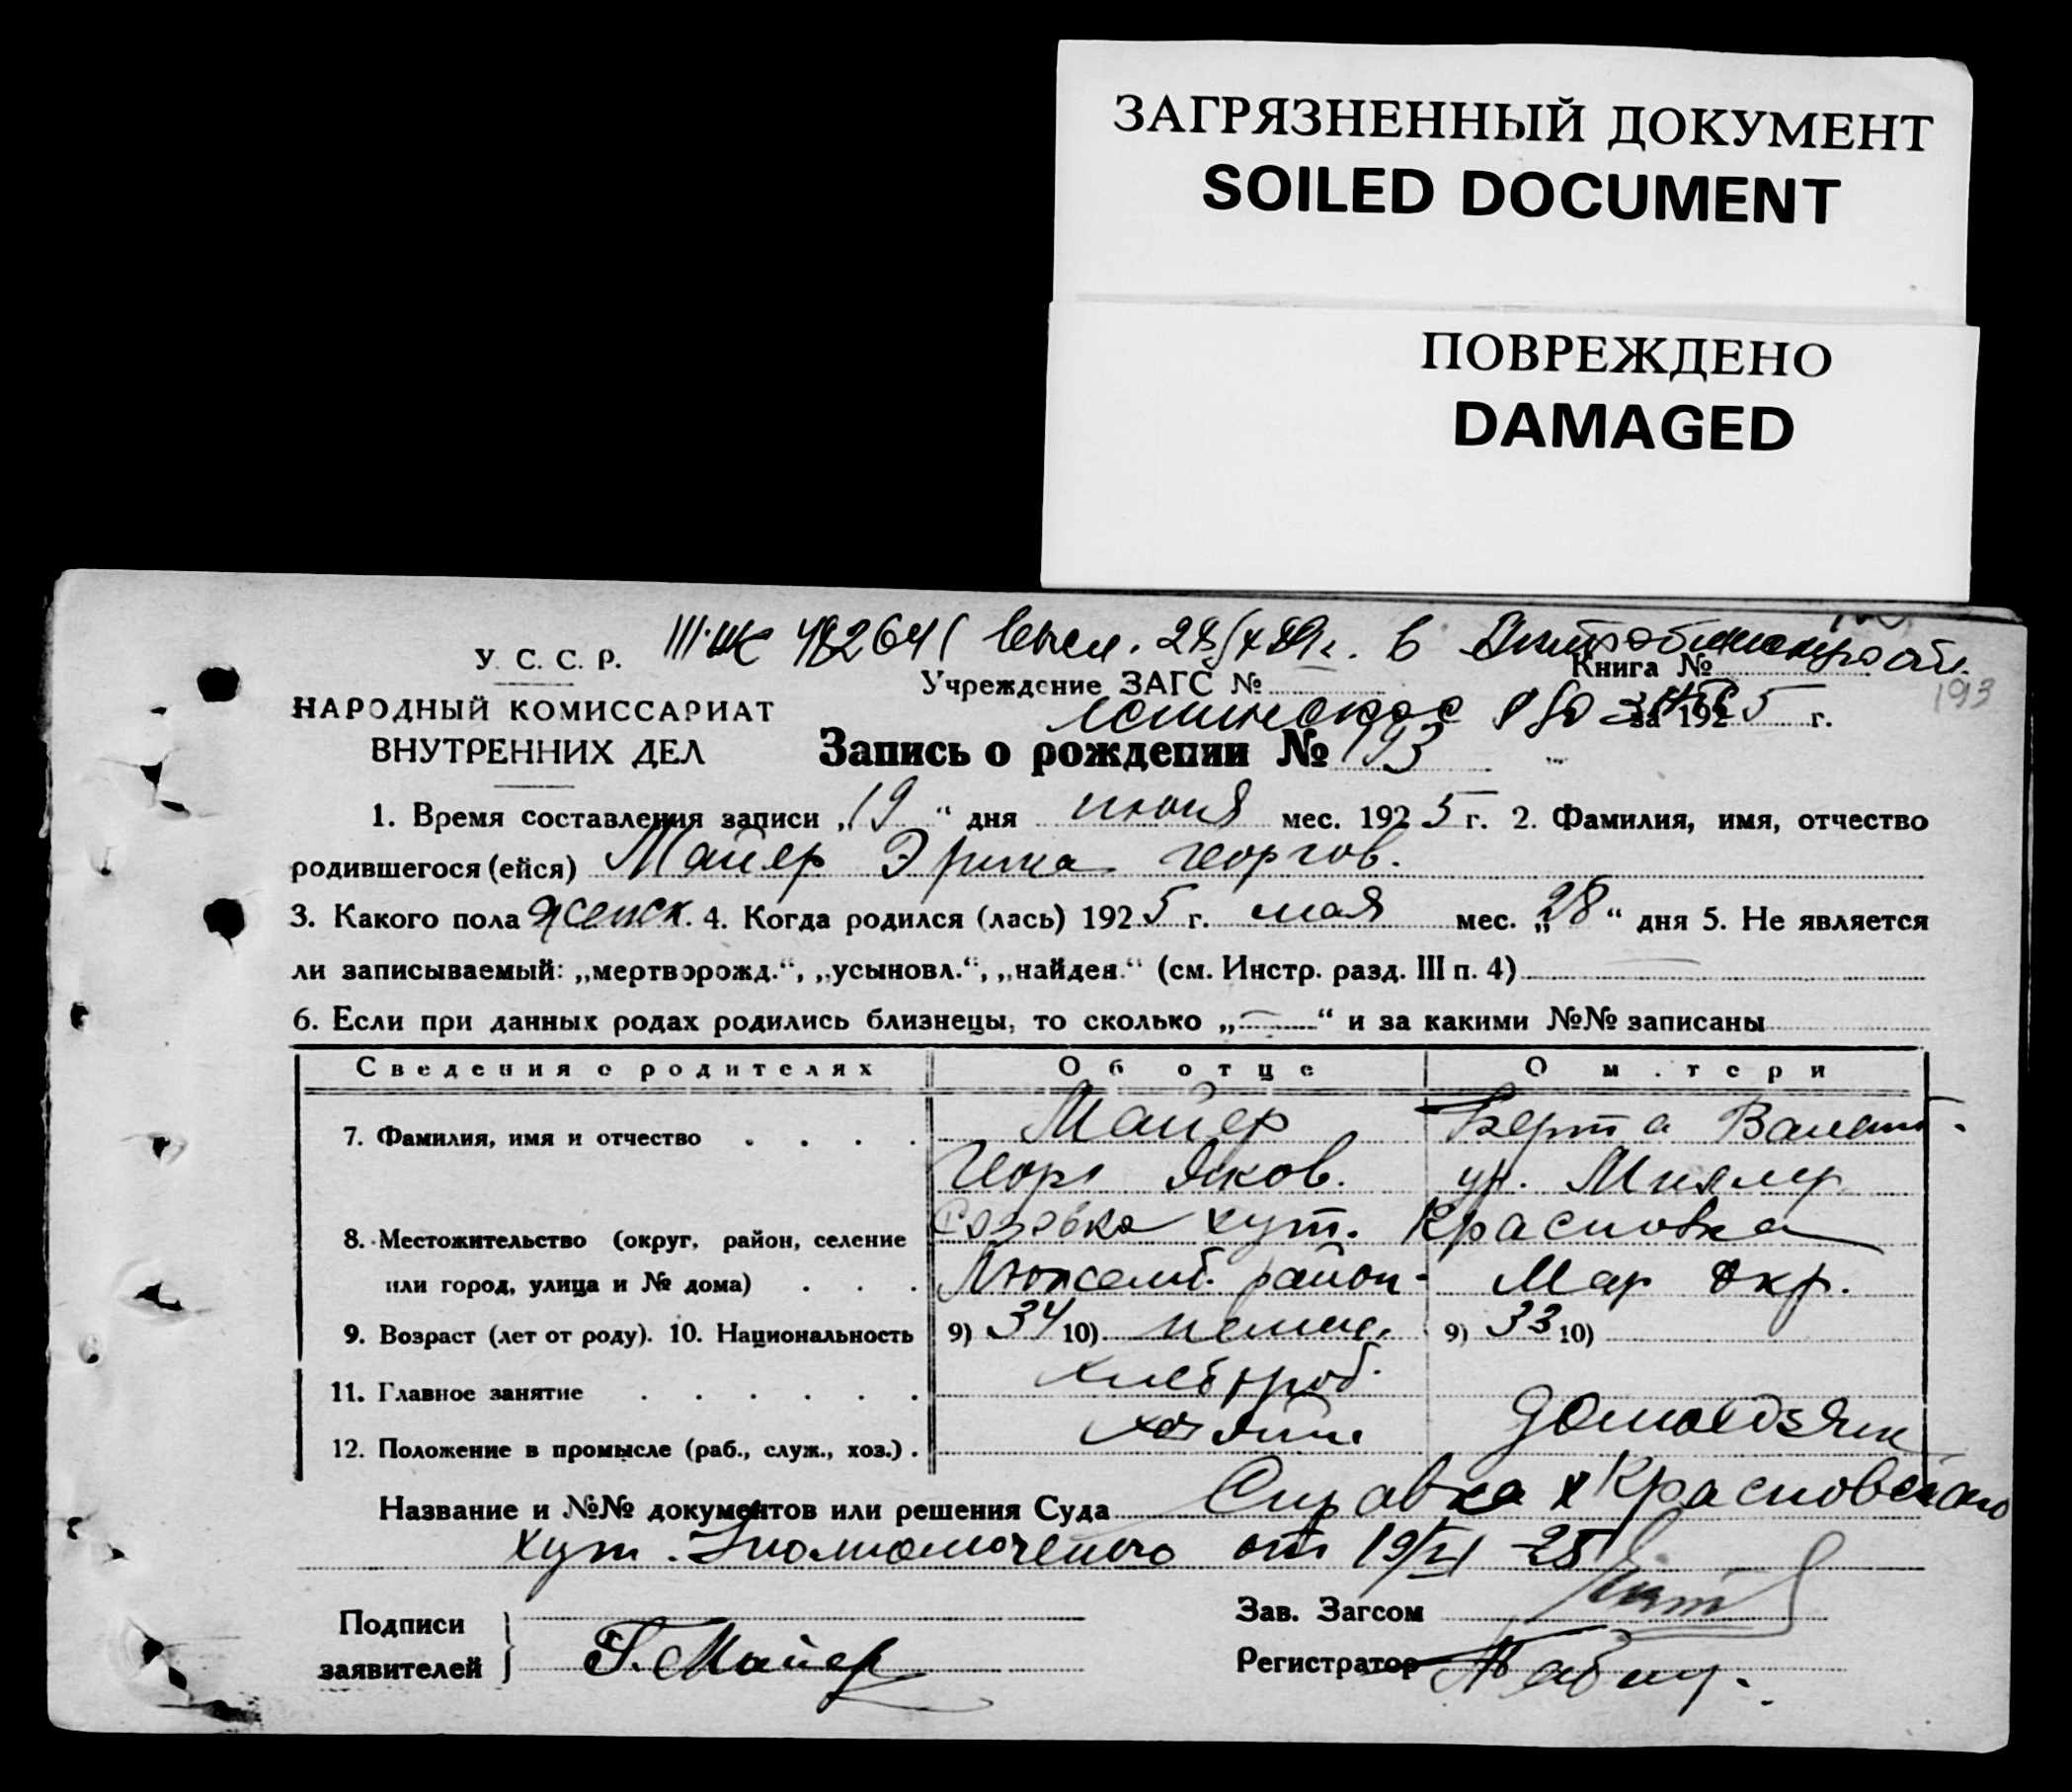 ЗАГРЯЗНЕННЫЙ ДОКУМЕНТ
SOILED DOCUMENT
ПОВРЕЖДЕНО
DAMAGED
У. С. С. Р.
НАРОДНЫЙ КОМИССАРИАТ
ВНУТРЕННИХ ДЕЛ
Учреждение ЗАГС №
Книга №
193
за 1925 г.
Запись о рождении № 193
1. Время составления записи „19“ дня июня мес. 1925 г. 2. Фамилия, имя, отчество
родившегося (ейся) Майер Эрика Георгов.
3. Какого пола женск. 4. Когда родился (лась) 1925 г. мая мес. „28“ дня 5. Не является
ли записываемый: „мертворожд.“, „усыновл.“, „найден.“ (см. Инстр. разд. III п. 4)
6. Если при данных родах родились близнецы, то сколько „—“ и за какими №№ записаны
Сведения о родителях Об отце О матери
7. Фамилия, имя и отчество Майер Берта Валент.
Георг Яков. ур. Миллер
8. Местожительство (округ, район, селение хут. Красновка
или город, улица и № дома) Люксемб. район Мар окр.
9. Возраст (лет от роду). 10. Национальность 9) 34 10) немец. 9) 33 10)
11. Главное занятие хлебороб.
12. Положение в промысле (раб., служ., хоз.) хозяин
Название и №№ документов или решения Суда Справка Красновского
хут. Уполномоченого от 19/VI-25
Подписи
заявителей
Г. Майер
Зав. Загсом
Регистратор